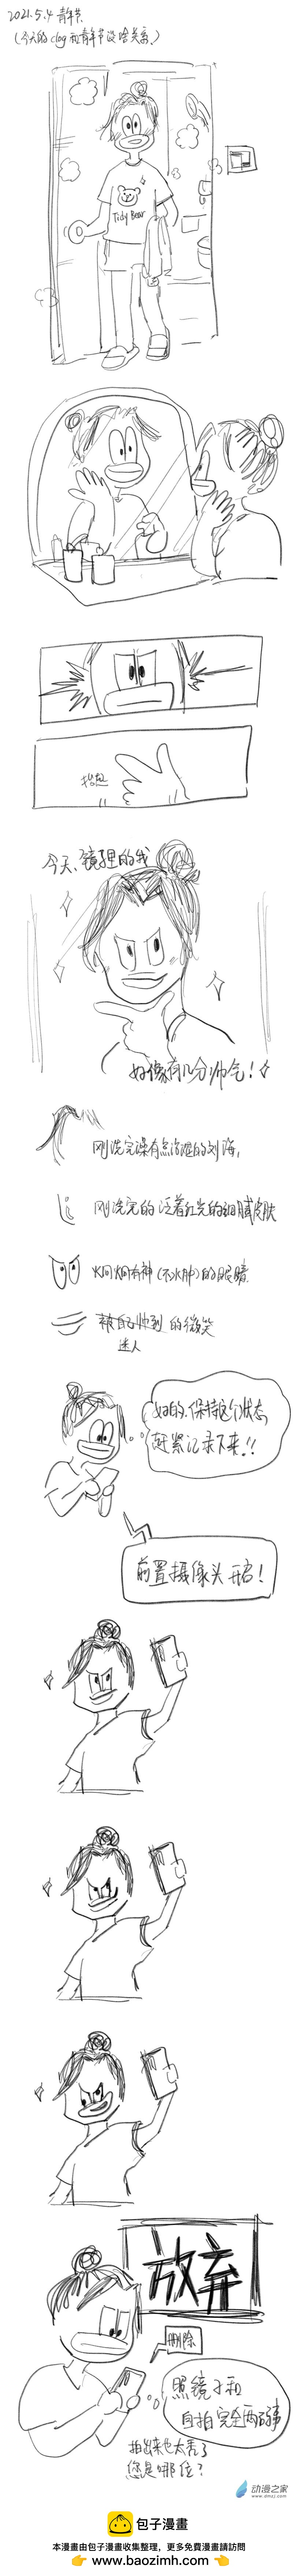 2021.5.4 青年节
(今天的clog和青年节没啥关系)
Tidy Bear
今天、镜子里的我
好像有几分帅气!
刚洗完澡有点湿湿的刘海,
刚洗完的泛着红光的细腻皮肤
炯炯有神(不水肿)的眼睛
被自己帅到的微笑
迷人
好的,保持这个状态
赶紧记录下来!!
前置摄像头开启!
放弃
删除
照镜子和
自拍完全两码事
拍出来也太秃了
您是哪位?
动漫之家
www.dmzj.com
包子漫畫
本漫畫由包子漫畫收集整理,更多免費漫畫請訪問
www.baozimh.com